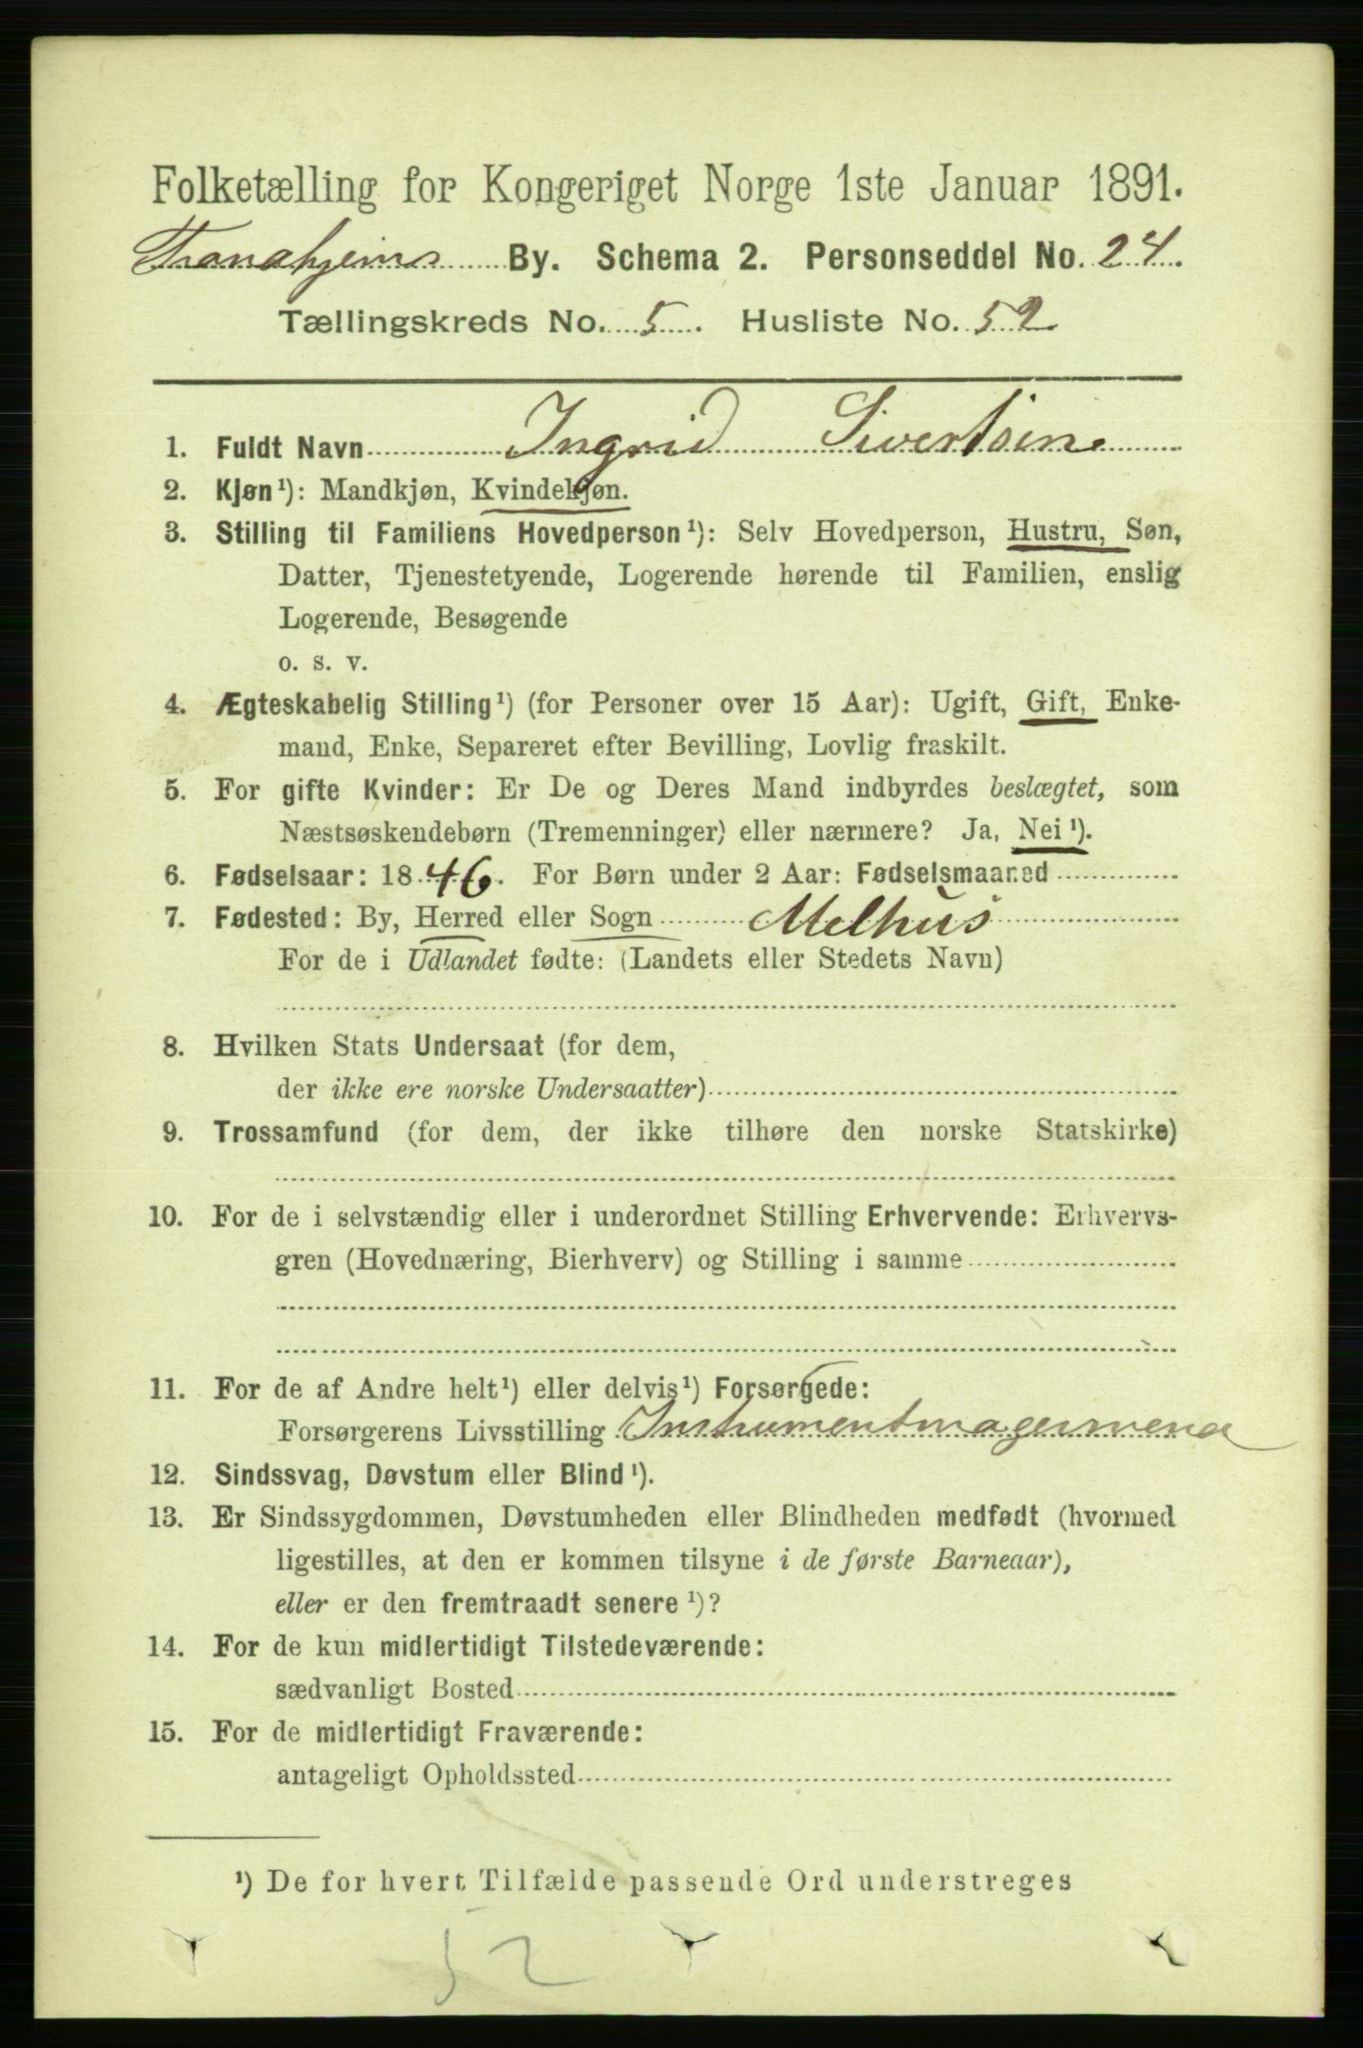 Folketælling for Kongeriget Norge 1ste Januar 1891.
Trondhjems By. Schema 2. Personseddel No. 24.
Tællingskreds No. 5. Husliste No. 52
1. Fuldt Navn Ingrid Sivertsen
2. Kjøn¹): Mandkjøn, Kvindekjøn.
3. Stilling til Familiens Hovedperson¹): Selv Hovedperson, Hustru, Søn,
Datter, Tjenestetyende, Logerende hørende til Familien, enslig
Logerende, Besøgende
o. s. v.
4. Ægteskabelig Stilling¹) (for Personer over 15 Aar): Ugift, Gift, Enke-
mand, Enke, Separeret efter Bevilling, Lovlig fraskilt.
5. For gifte Kvinder: Er De og Deres Mand indbyrdes beslægtet, som
Næstsøskendebørn (Tremenninger) eller nærmere? Ja, Nei¹).
6. Fødselsaar: 1846. For Børn under 2 Aar: Fødselsmaaned
7. Fødested: By, Herred eller Sogn Melhus
For de i Udlandet fødte: (Landets eller Stedets Navn)
8. Hvilken Stats Undersaat (for dem,
der ikke ere norske Undersaatter)
9. Trossamfund (for dem, der ikke tilhøre den norske Statskirke)
10. For de i selvstændig eller i underordnet Stilling Erhvervende: Erhvervs-
gren (Hovednæring, Bierhverv) og Stilling i samme
11. For de af Andre helt¹) eller delvis¹) Forsørgede:
Forsørgerens Livsstilling Instrumentmagersvend
12. Sindssvag, Døvstum eller Blind¹).
13. Er Sindssygdommen, Døvstumheden eller Blindheden medfødt (hvormed
ligestilles, at den er kommen tilsyne i de første Barneaar),
eller er den fremtraadt senere¹)?
14. For de kun midlertidigt Tilstedeværende:
sædvanligt Bosted
15. For de midlertidigt Fraværende:
antageligt Opholdssted
¹) De for hvert Tilfælde passende Ord understreges
52